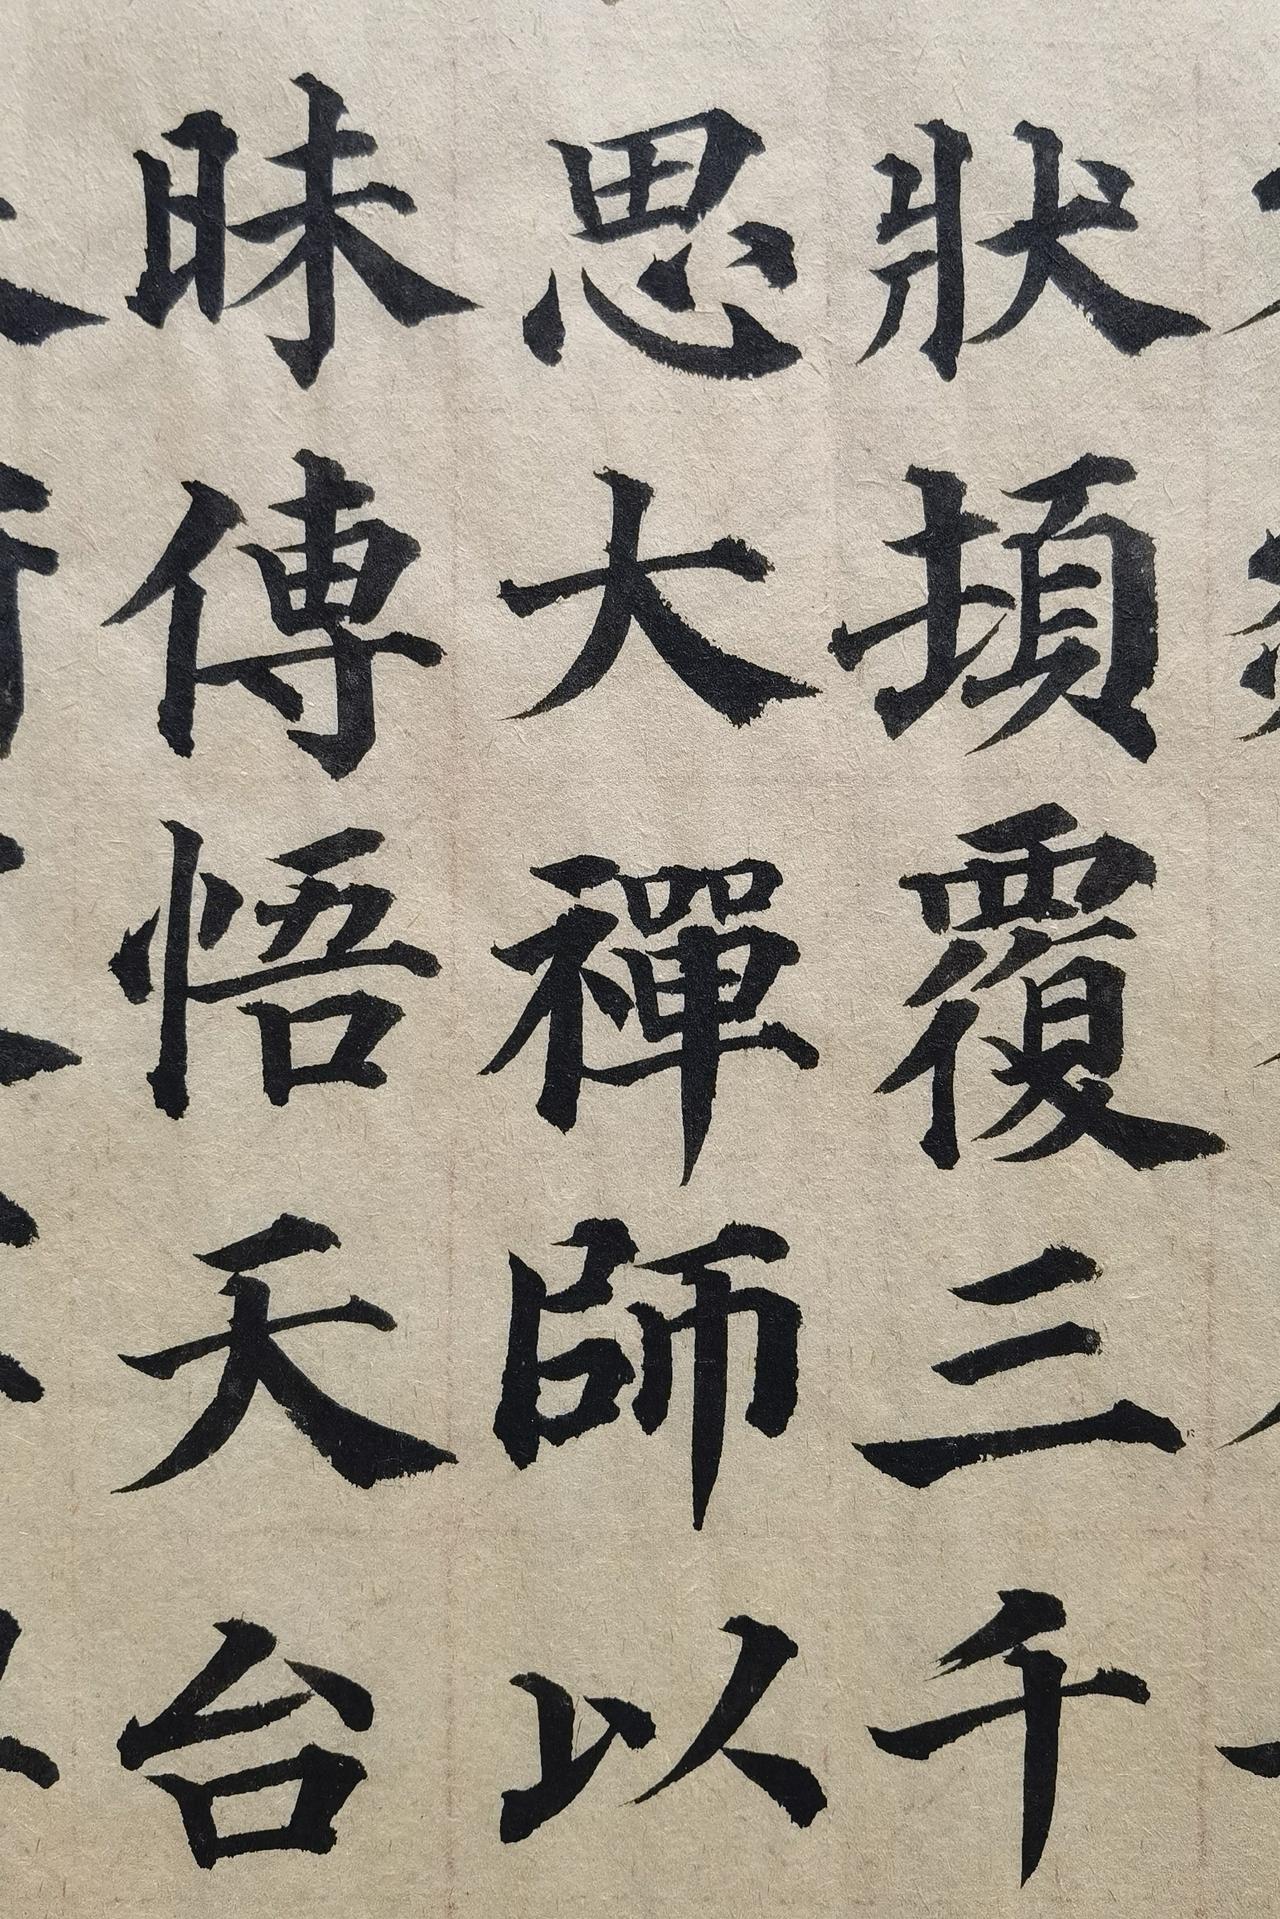 狀覆三千
思大禪師以
昧傳悟天台